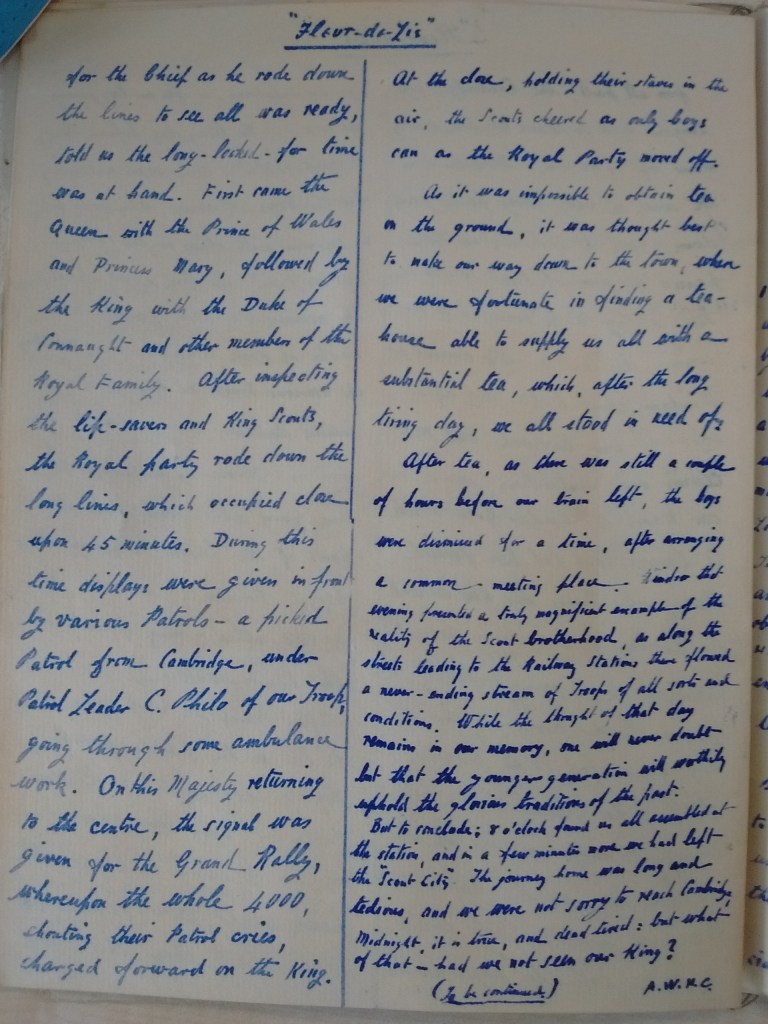 "Fleur-de-Lis"
for the Chief as he rode down
the lines to see all was ready,
told us the long-looked-for time
was at hand. First came the
Queen with the Prince of Wales
and Princess Mary, followed by
the King with the Duke of
Connaught and other members of the
Royal Family. After inspecting
the life-savers and King Scouts,
the Royal party rode down the
long lines, which occupied close
upon 45 minutes. During this
time displays were given in front
by various Patrols - a picked
Patrol from Cambridge, under
Patrol Leader C. Philo of our Troop,
going through some ambulance
work. On his Majesty returning
to the centre, the signal was
given for the Grand Rally,
whereupon the whole 4000,
shouting their Patrol cries,
charged forward on the King.
At the close, holding their staves in the
air, the Scouts cheered as only boys
can as the Royal Party moved off.
As it was impossible to obtain tea
on the ground, it was thought best
to make our way down to the town, where
we were fortunate in finding a tea-
house able to supply us all with a
substantial tea, which, after the long
tiring day, we all stood in need of.
After tea, as there was still a couple
of hours before our train left, the boys
were dismissed for a time, after arranging
a common meeting place. Windsor that
evening presented a truly magnificent example of the
reality of the Scout brotherhood, as along the
streets leading to the Railway Stations there flowed
a never-ending stream of Troops of all sorts and
conditions. While the thought of that day
remains in our memory, one will never doubt
but that the younger generation will worthily
uphold the glorious traditions of the past.
But to conclude; 8 o'clock found us all assembled at
the station, and in a few minutes more we had left
the Scout City. The journey home was long and
tedious, and we were not sorry to reach Cambridge,
Midnight, it is true, and dead tired: but what
of that - had we not seen our King?
(To be continued.)